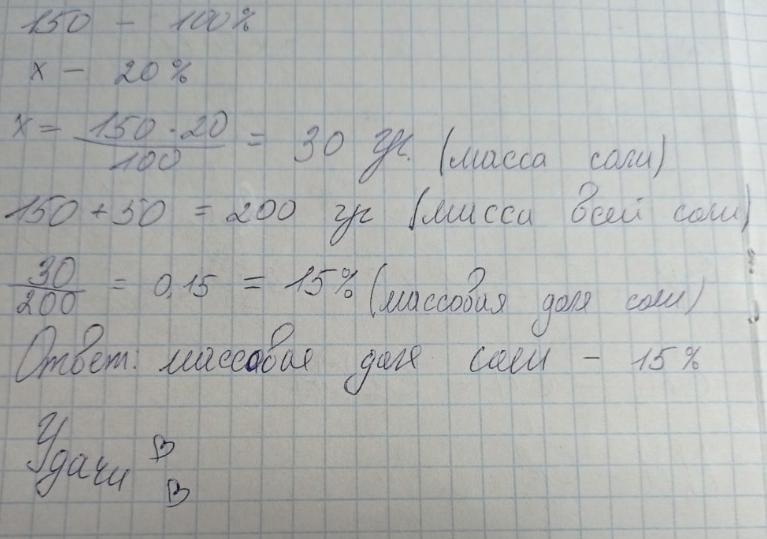 150 - 100%
х - 20%
х = 150 · 20 / 100 = 30 гр. (масса соли)
150 + 50 = 200 гр (масса всей соли)
30 / 200 = 0,15 = 15% (массовая доля соли)
Ответ: массовая доля соли - 15%
Удачи